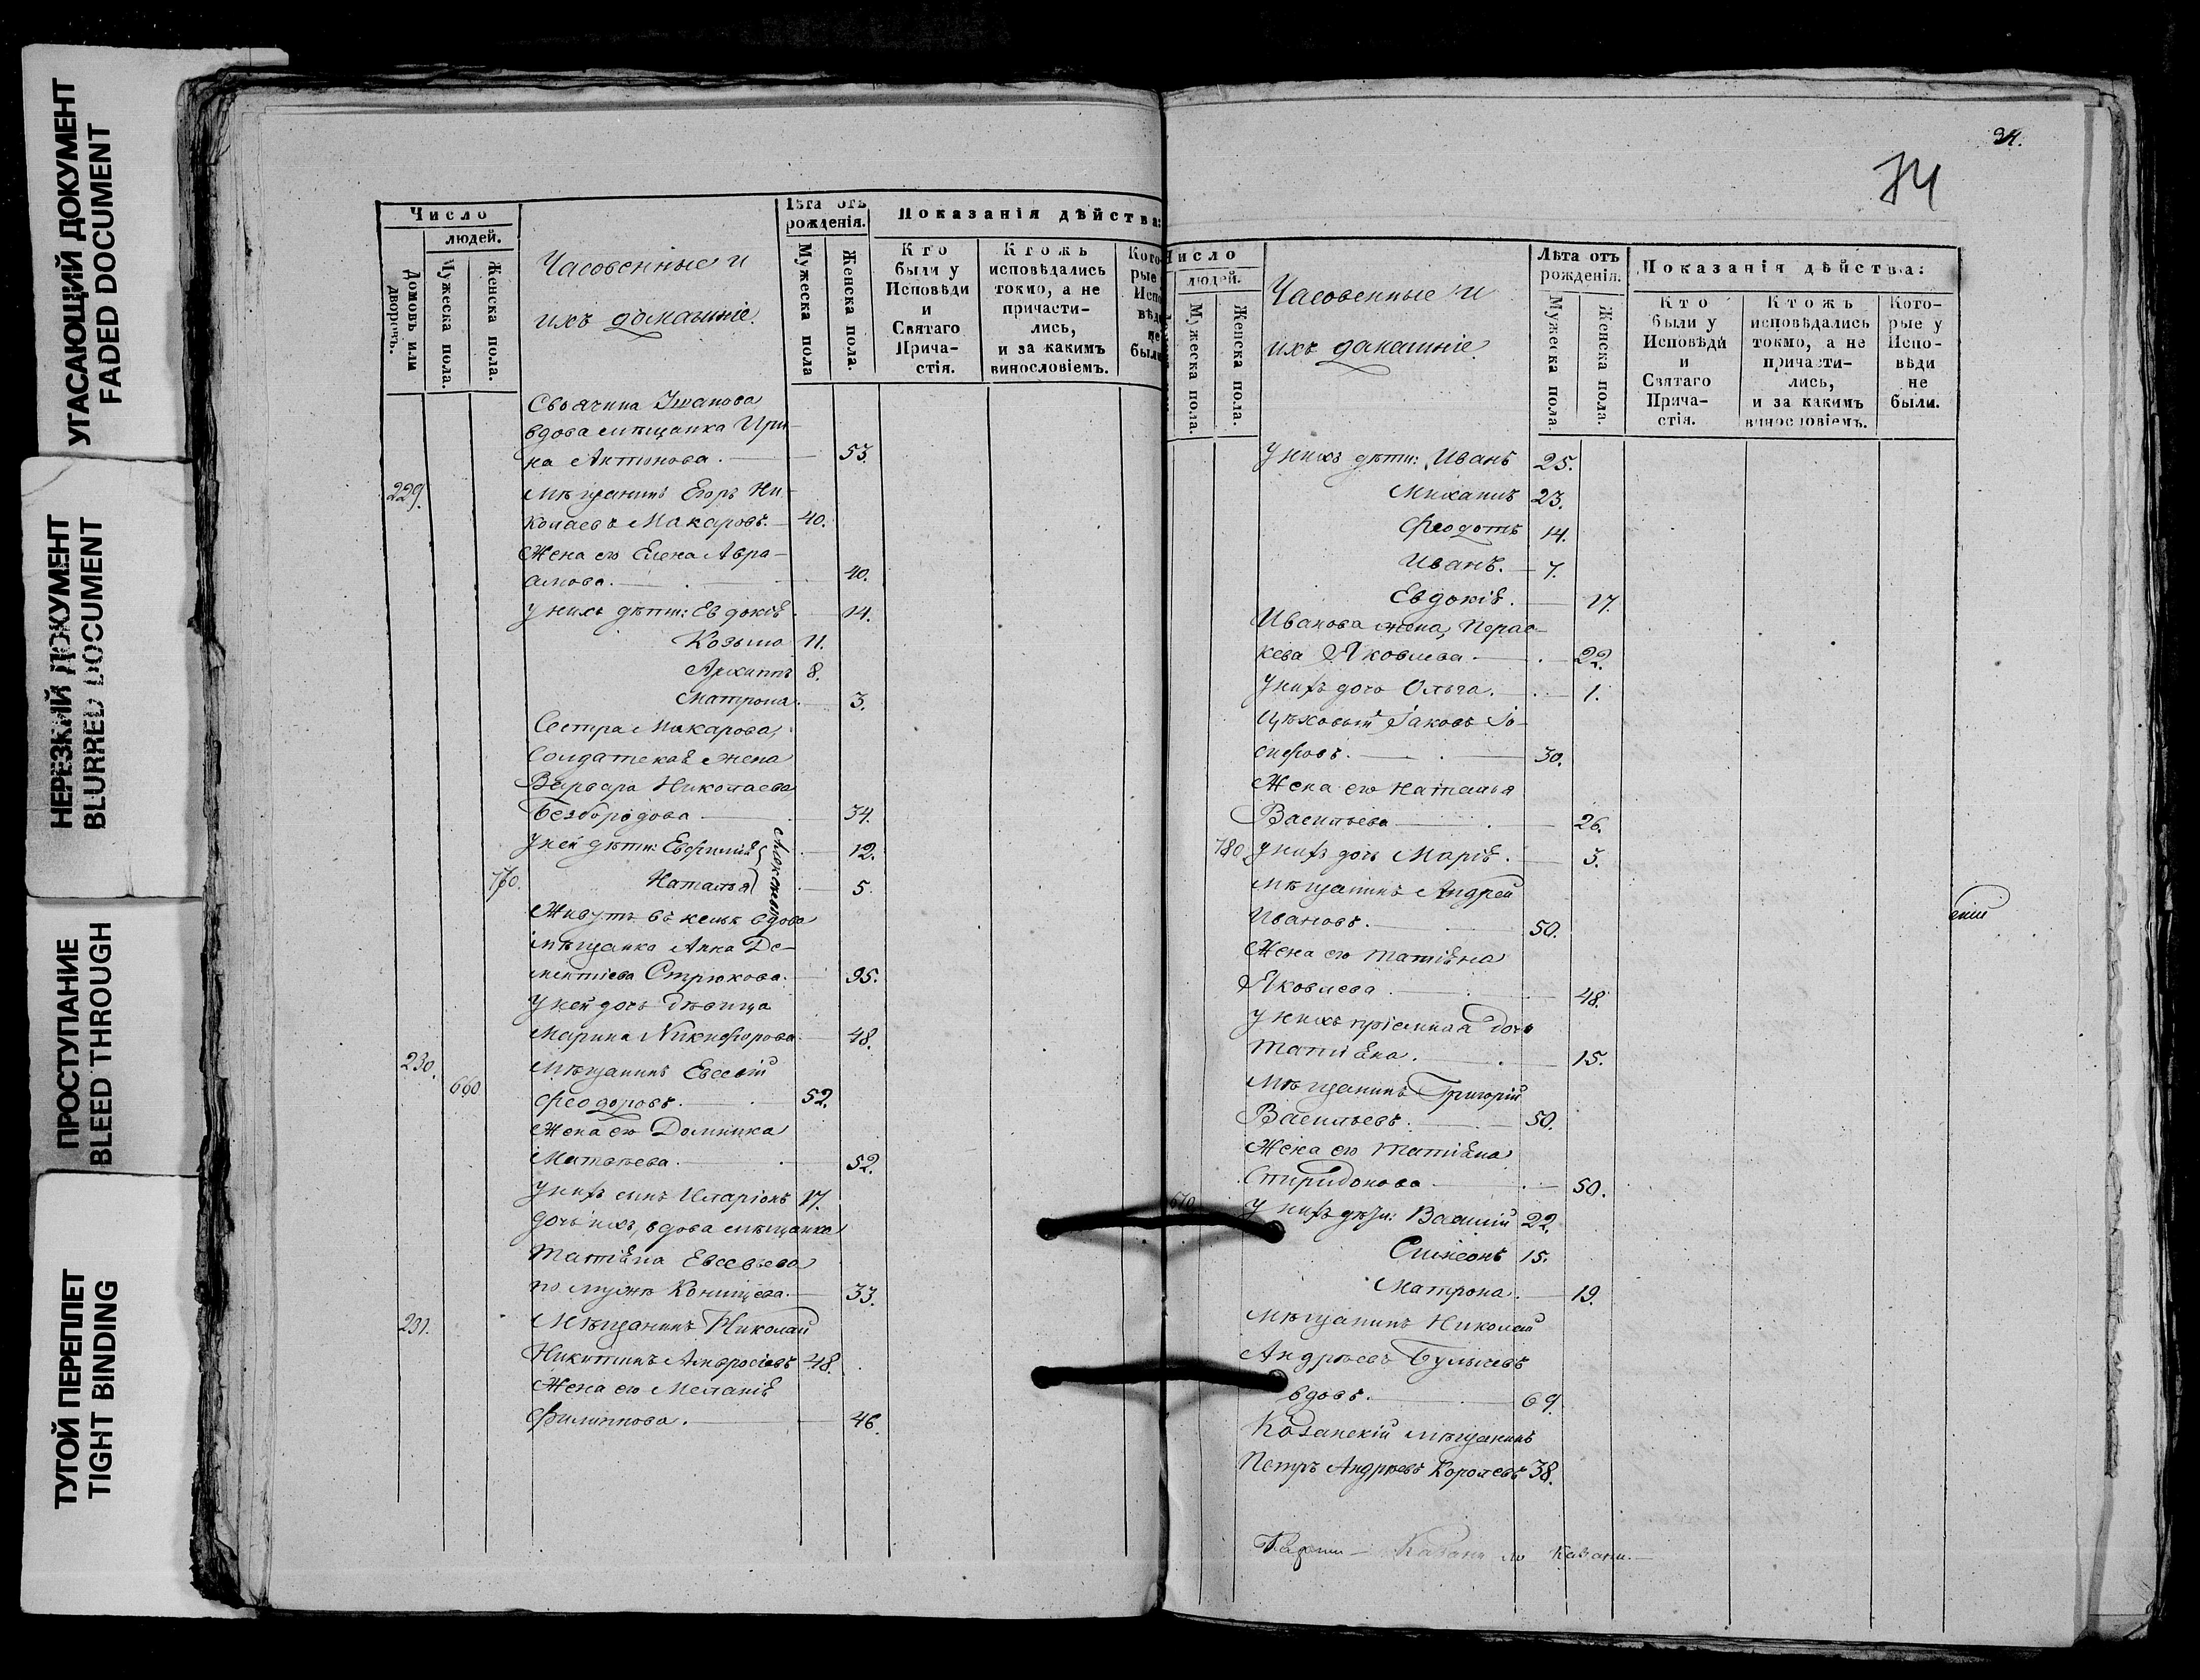 УГАСАЮЩИЙ ДОКУМЕНТ
FADED DOCUMENT
НЕРЕЗКИЙ ДОКУМЕНТ
BLURRED DOCUMENT
ПРОСТУПАНИЕ
BLEED THROUGH
ТУГОЙ ПЕРЕПЛЕТ
TIGHT BINDING
Число
людей.
Домовъ или дворовъ.
Мужеска пола.
Женска пола.
Часовенные и
ихъ домашніе.
Лѣта отъ
рожденія.
Мужеска пола
Женска пола.
Показанія дѣйства:
Кто
были у
Исповѣди
и
Святаго
Прича-
стія.
Ктожъ
исповѣдались
токмо, а не
причасти-
лись,
и за какимъ
винословіемъ.
Кото-
рые
Испо
вѣд
не
были
Свояч­ина
вдова мѣщанка Ири-
на Антонова. 53.
229. Мѣщанинъ Егоръ Ни-
колаевъ Макаровъ. 40.
Жена его Елена Авра-
амова. 40.
У нихъ дѣти: Евдокія. 14.
Козьма 11.
Архиппъ 8.
Матрона. 3.
Сестра Макарова,
Солдатская жена
Варвара Николаева
Безбородова 34.
У ней дѣти: Евфимія 12.
770. Наталья 5.
Живутъ въ кельѣ вдова
мѣщанка Анна Де-
ментіева Стрюкова. 95.
У ней дочь дѣвица
Марина Никифорова. 48.
230. Мѣщанинъ Евсевій
660 Феодоровъ. 52.
Жена его Домника
Матвѣева. 52.
У нихъ сынъ Иларіонъ 17.
Дочь ихъ, вдова мѣщанка
Татіяна Евсевьева
по мужѣ 33.
231. Мѣщанинъ Николай
Никитинъ Амвросіевъ 48.
Жена его Меланія
Филиппова. 46.
34.
74
Число
людей.
Мужеска пола.
Женска пола.
Часовенные и
ихъ домашніе.
Лѣта отъ
рожденія.
Мужеска пола.
Женска пола.
Показанія дѣйства:
Кто
были у
Исповѣди
и
Святаго
Прича-
стія.
Ктожъ
исповѣдались
токмо, а не
причасти-
лись,
и за какимъ
винословіемъ.
Кото-
рые у
Испо-
вѣди
не
были.
У нихъ дѣти: Иванъ 25.
Михаилъ 23.
Феодотъ 14.
Иванъ. 7.
Евдокія. 17.
Иванова жена, Парас-
кева Яковлева 22.
У нихъ дочь Ольга. 1.
Цѣховый Іаковъ Іо-
сифовъ. 30.
Жена его Наталья
Васильева 26.
780. У нихъ дочь Марія. 3.
Мѣщанинъ Андрей
Ивановъ. 50.
Жена его Татіяна
Яковлева 48.
У нихъ пріемная дочь
Татіяна. 15.
Мѣщанинъ Григорій
Васильевъ. 50.
Жена его Татіяна
Спиридонова 50.
670. У нихъ дѣти: Василій 22.
Симеонъ 15.
Матрона. 19.
Мѣщанинъ Николай
Андреевъ Булычевъ
вдовъ. 69.
Казанскій мѣщанинъ
Петръ Андреевъ Королевъ 38.